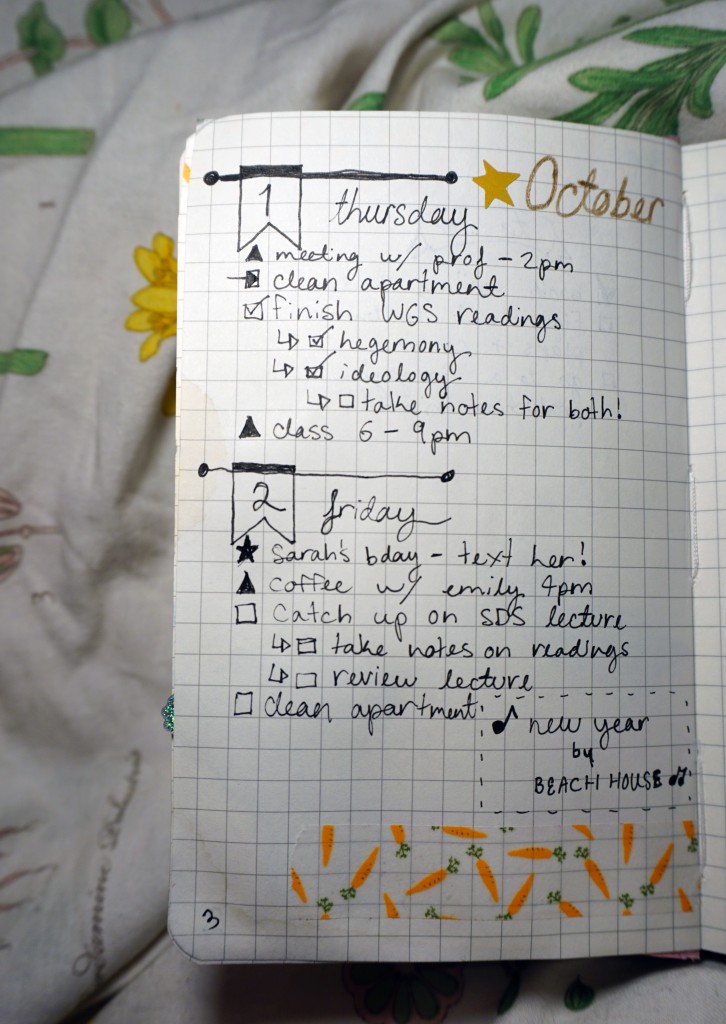 October
1 thursday
meeting w/ prof - 2pm
clean apartment
finish WGS readings
hegemony
ideology
take notes for both!
class 6 - 9pm
2 friday
Sarah's bday - text her!
coffee w/ emily 4pm
Catch up on SDS lecture
take notes on readings
review lecture
clean apartment
new year
by
BEACH HOUSE
3